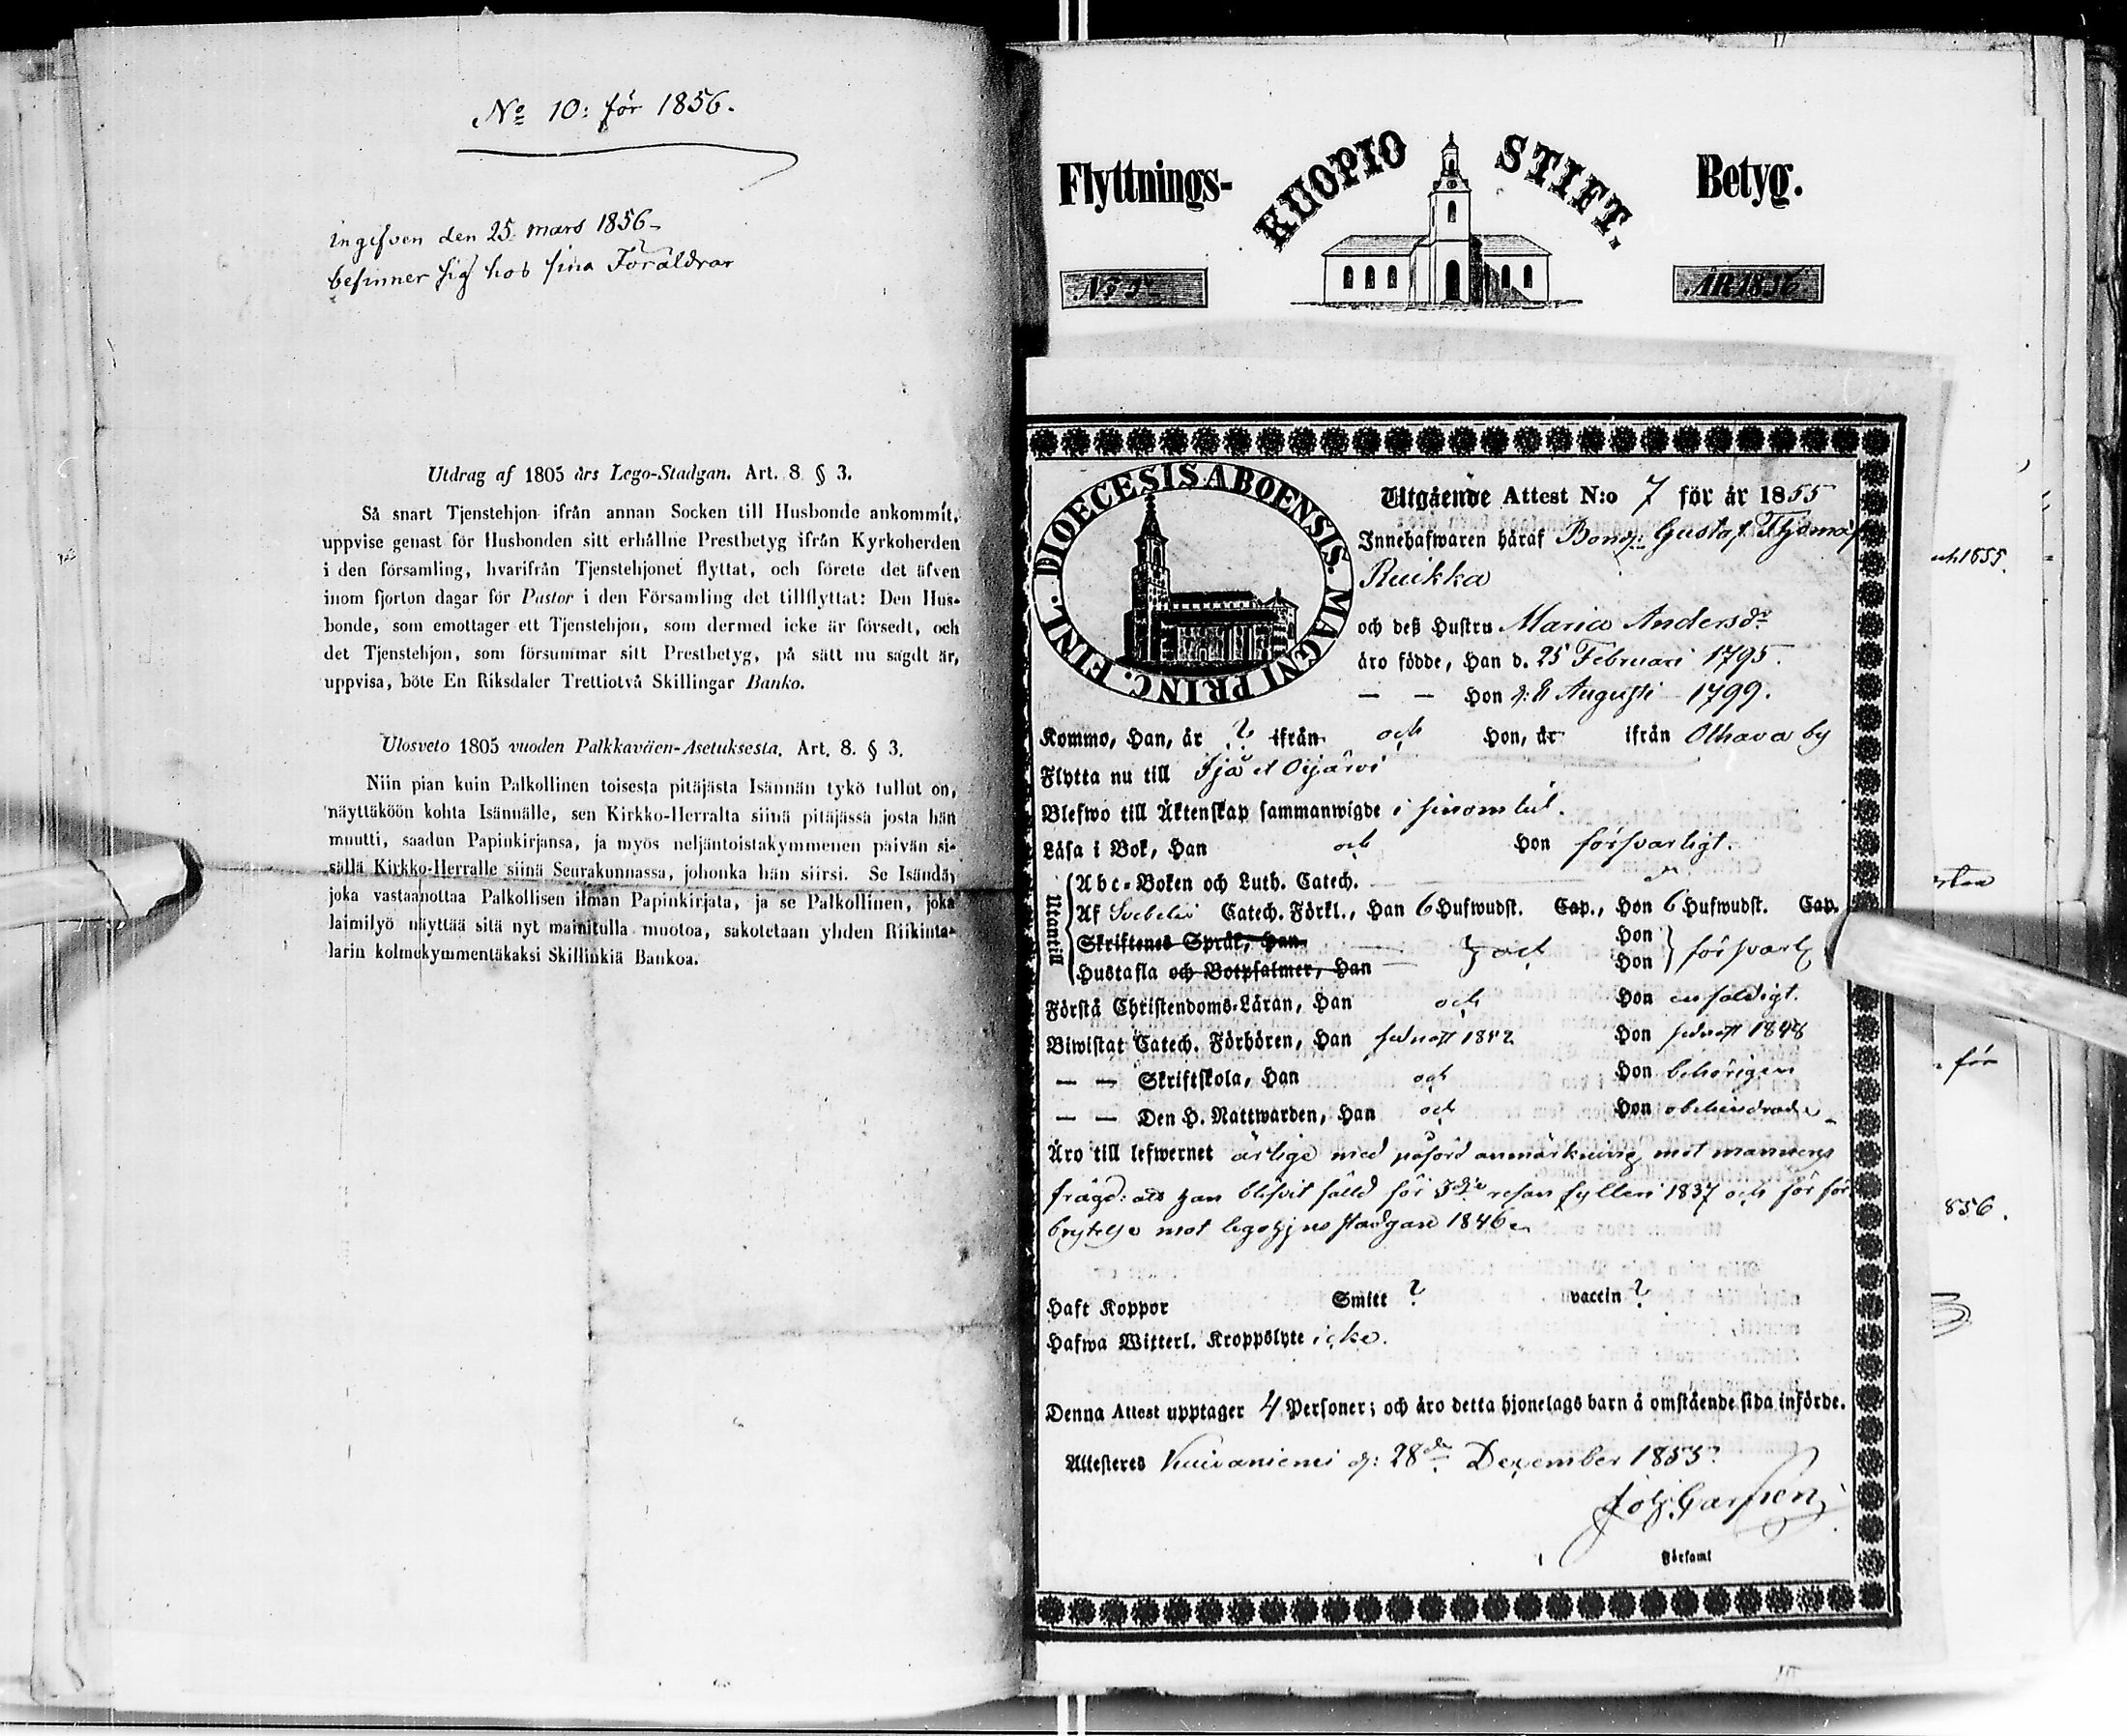 No 10: för 1856.
ingifven den 25 mars 1856
befinner sig hos sina Föräldrar
Utdrag af 1805 års Lego-Stadgan. Art. 8 § 3.
Så snart Tjenstehjon ifrån annan Socken till Husbonde ankommit,
uppvise genast för Husbonden sitt erhållne Prestbetyg ifrån Kyrkoherden
i den församling, hvarifrån Tjenstehjonet flyttat, och förete det äfven
inom fjorton dagar för Pastor i den Församling det tillflyttat: Den Hus-
bonde, som emottager ett Tjenstehjon, som dermed icke är försedt, och
det Tjenstehjon, som försummar sitt Prestbetyg, på sätt nu sagdt är,
uppvisa, böte En Riksdaler Trettiotvå Skillingar Banko.
Ulosveto 1805 vuoden Palkkaväen-Asetuksesta. Art. 8. § 3.
Niin pian kuin Palkollinen toisesta pitäjästa Isännän tykö tullut on,
näyttäköön kohta Isännälle, sen Kirkko-Herralta siinä pitäjässä josta hän
muutti, saadun Papinkirjansa, ja myös neljäntoistakymmenen päivän si-
sällä Kirkko-Herralle siinä Seurakunnassa, johonka hän siirsi. Se Isändä,
joka vastaanottaa Palkollisen ilman Papinkirjata, ja se Palkollinen, joka
laimilyö näyttää sitä nyt mainitulla muotoa, sakotetaan yhden Riikinta-
larin kolmekymmentäkaksi Skillinkiä Bankoa.
Flyttnings- KUOPIO STIFT. Betyg.
ÅR 1856
DIOECESIS ABOENSIS MAGNI PRINC. FINL.
Utgående Attest N:o 7 för år 1855
Innehafwaren häraf Gustaf
Ruikka
och deß Hustru Maria Andersdr
äro födde, Han d. 25 Februari 1795.
— — Hon d: 8 Augusti 1799.
Komne, Han, år ? ifrån och Hon, år ifrån Olhava by
Flytta nu till Ijo Oijärvi
Blefwo till Äktenskap sammanwigde i sinom tid.
Läsa i Bok, Han och Hon försvarligt.
Utantill
Abc-Boken och Luth. Catech.
Af Svebelii Catech. Förkl., Han 6 Hufwudst. Cap., Hon 6 Hufwudst. Cap.
Skriftenes Språk, Han Hon
Hustafla och Botpsalmer, Han och Hon försvarl
Förstå Christendoms-Läran, Han och Hon enfaldigt.
Biwistat Catech. Förhören, Han sednast 1852 Hon sednast 1848
— — Skriftskola, Han och Hon behörigen
— — Den H. Nattwarden, Han och Hon obehindrade
Äro till lefwernet ärlige med påförd anmärkning mot mannens
frägd: att han blifvit fälld för 3dje resan fylleri 1837 och för för
brytelse mot legohjons stadgan 1846
Haft Koppor Smitt ? vaccin ?
Hafwa Witterl. Kroppslyte icke.
Denna Attest upptager 4 Personer; och äro detta hjonelags barn å omstående sida införde.
Attesteres Kuivaniemi d: 28de December 1855.
Församl
1855.
för
856.